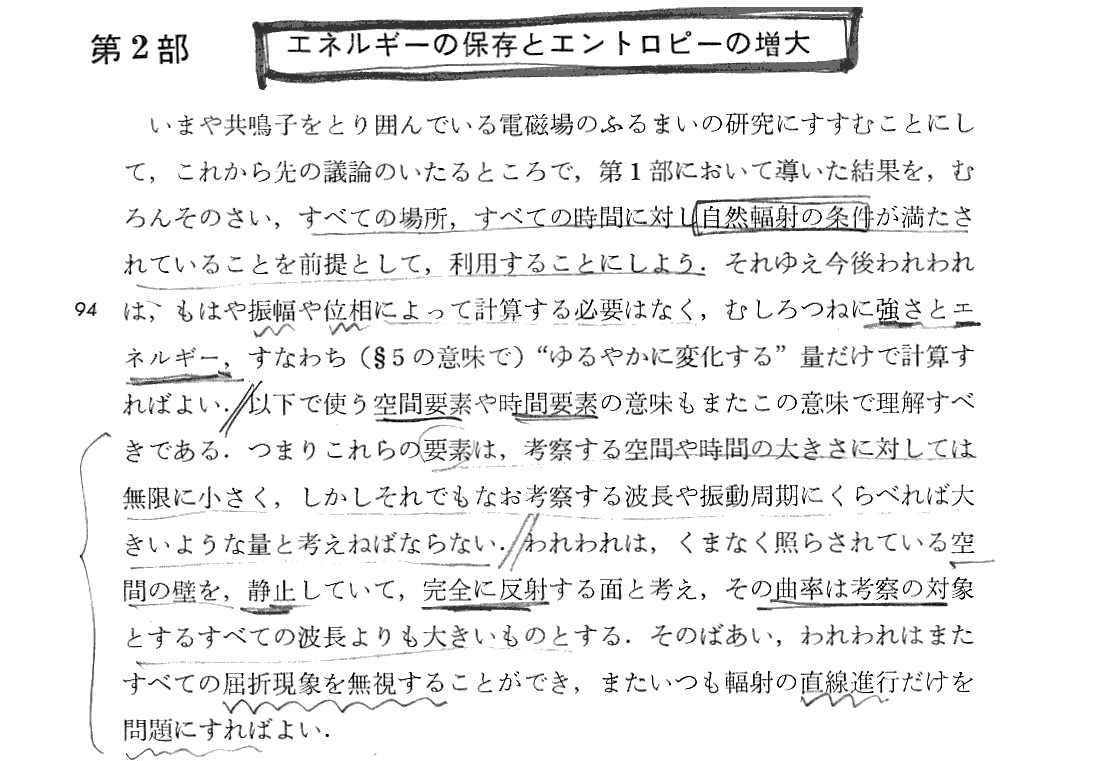 第2部 エネルギーの保存とエントロピーの増大
いまや共鳴子をとり囲んでいる電磁場のふるまいの研究にすすむことにし
て，これから先の議論のいたるところで，第1部において導いた結果を，む
ろんそのさい，すべての場所，すべての時間に対し自然輻射の条件が満たさ
れていることを前提として，利用することにしよう．それゆえ今後われわれ
94 は，もはや振幅や位相によって計算する必要はなく，むしろつねに強さとエ
ネルギー，すなわち（§5の意味で）“ゆるやかに変化する”量だけで計算す
ればよい．以下で使う空間要素や時間要素の意味もまたこの意味で理解すべ
きである．つまりこれらの要素は，考察する空間や時間の大きさに対しては
無限に小さく，しかしそれでもなお考察する波長や振動周期にくらべれば大
きいような量と考えねばならない．われわれは，くまなく照らされている空
間の壁を，静止していて，完全に反射する面と考え，その曲率は考察の対象
とするすべての波長よりも大きいものとする．そのばあい，われわれはまた
すべての屈折現象を無視することができ，またいつも輻射の直線進行だけを
問題にすればよい．